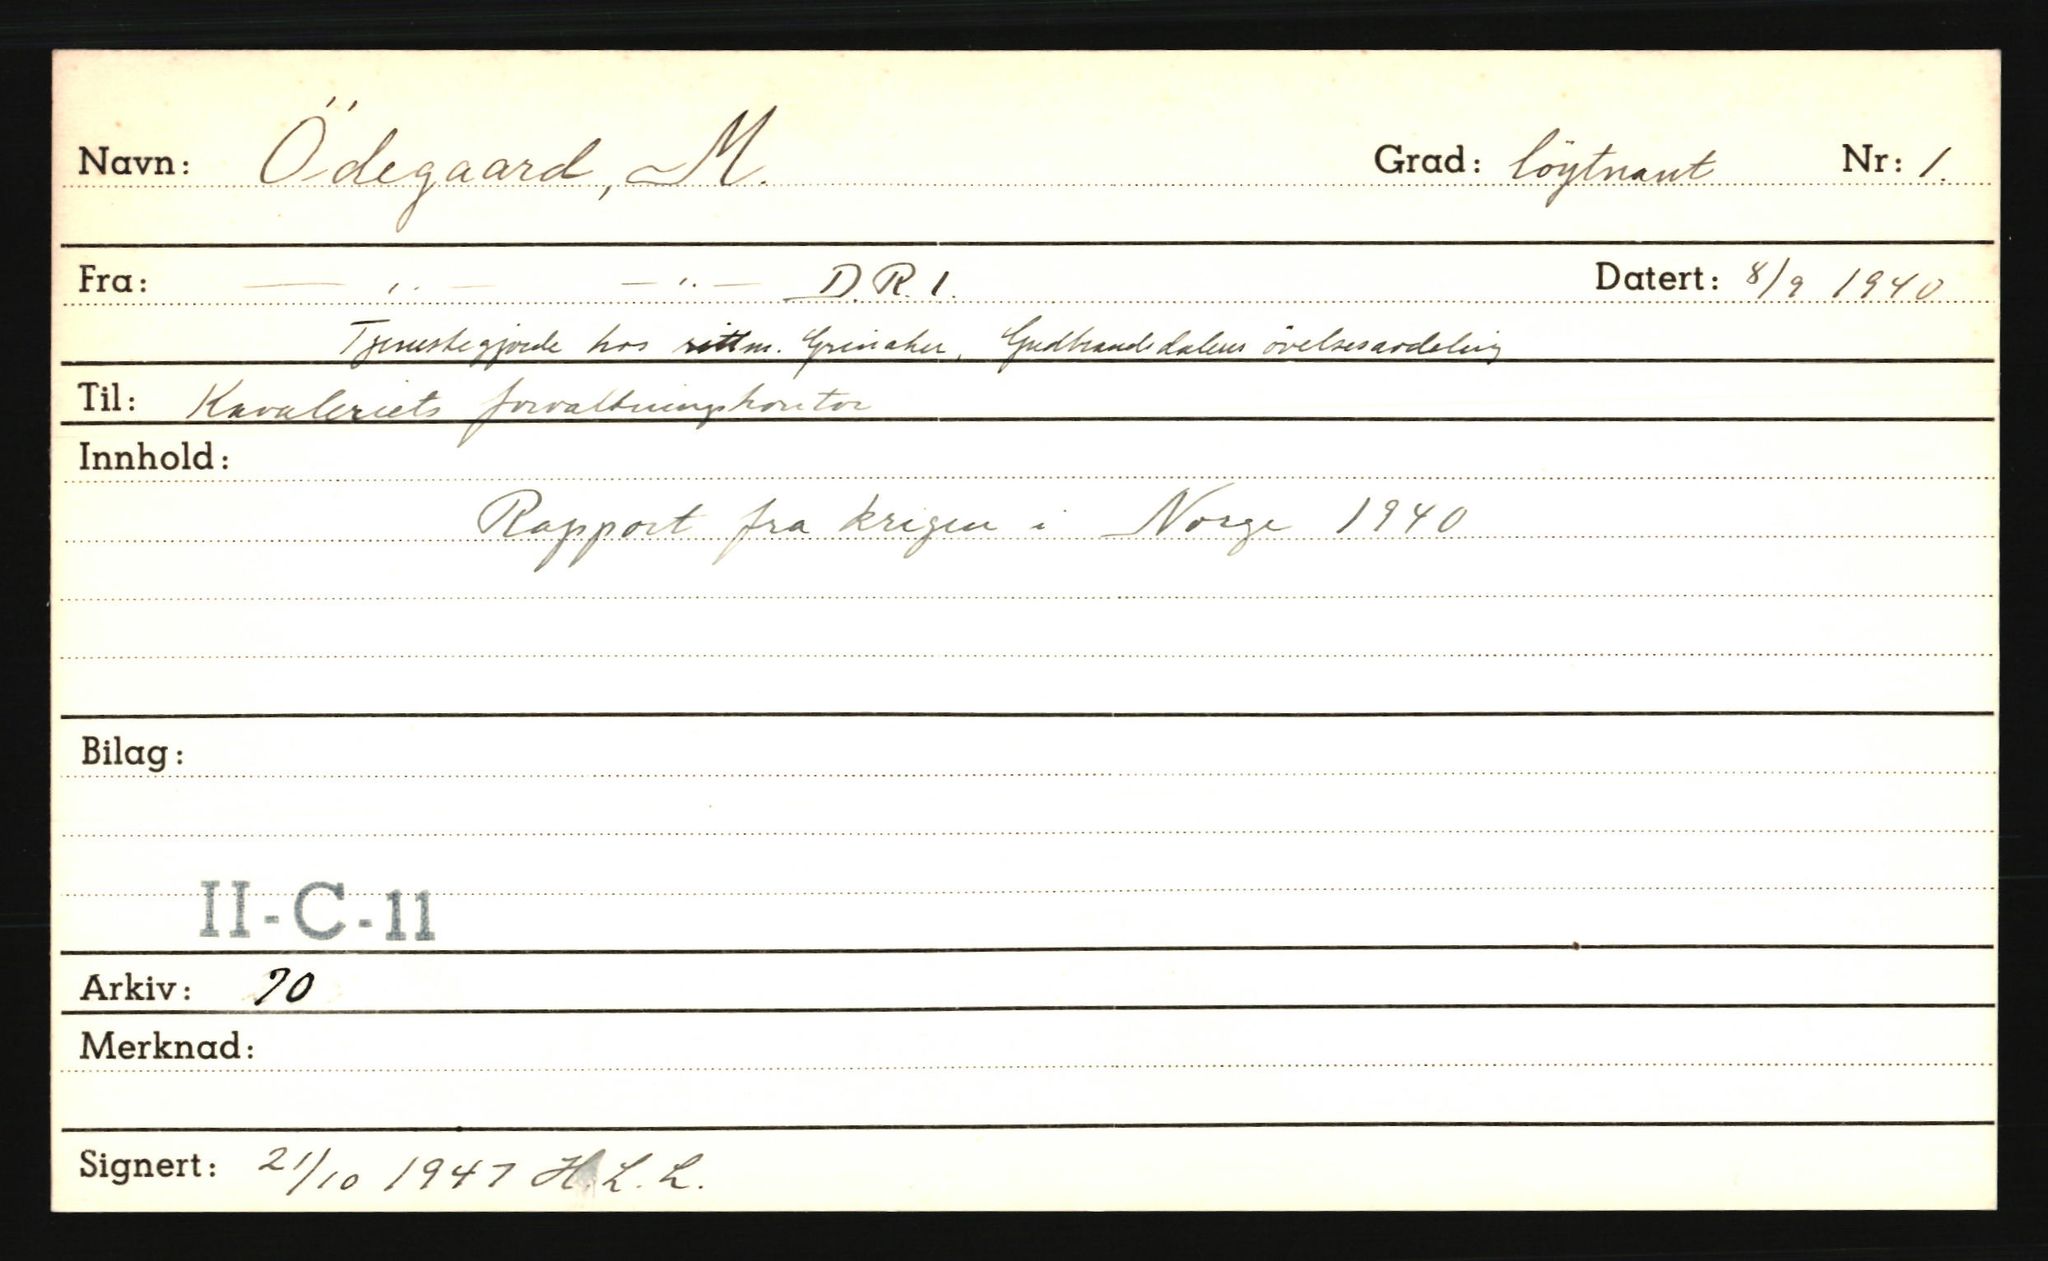 Navn: Ödegaard, M. Grad: löytnant Nr: 1.
Fra: — " — — " — D.R. 1. Datert: 8/9 1940
Tjenestegjorde hos rittm. Grinaker, Gudbrandsdalens övelsesavdeling
Til: Kavaleriets forvaltningskontor
Innhold:
Rapport fra krigen i Norge 1940
Bilag:
II-C-11
Arkiv: 70
Merknad:
Signert: 21/10 1947 H.L.L.